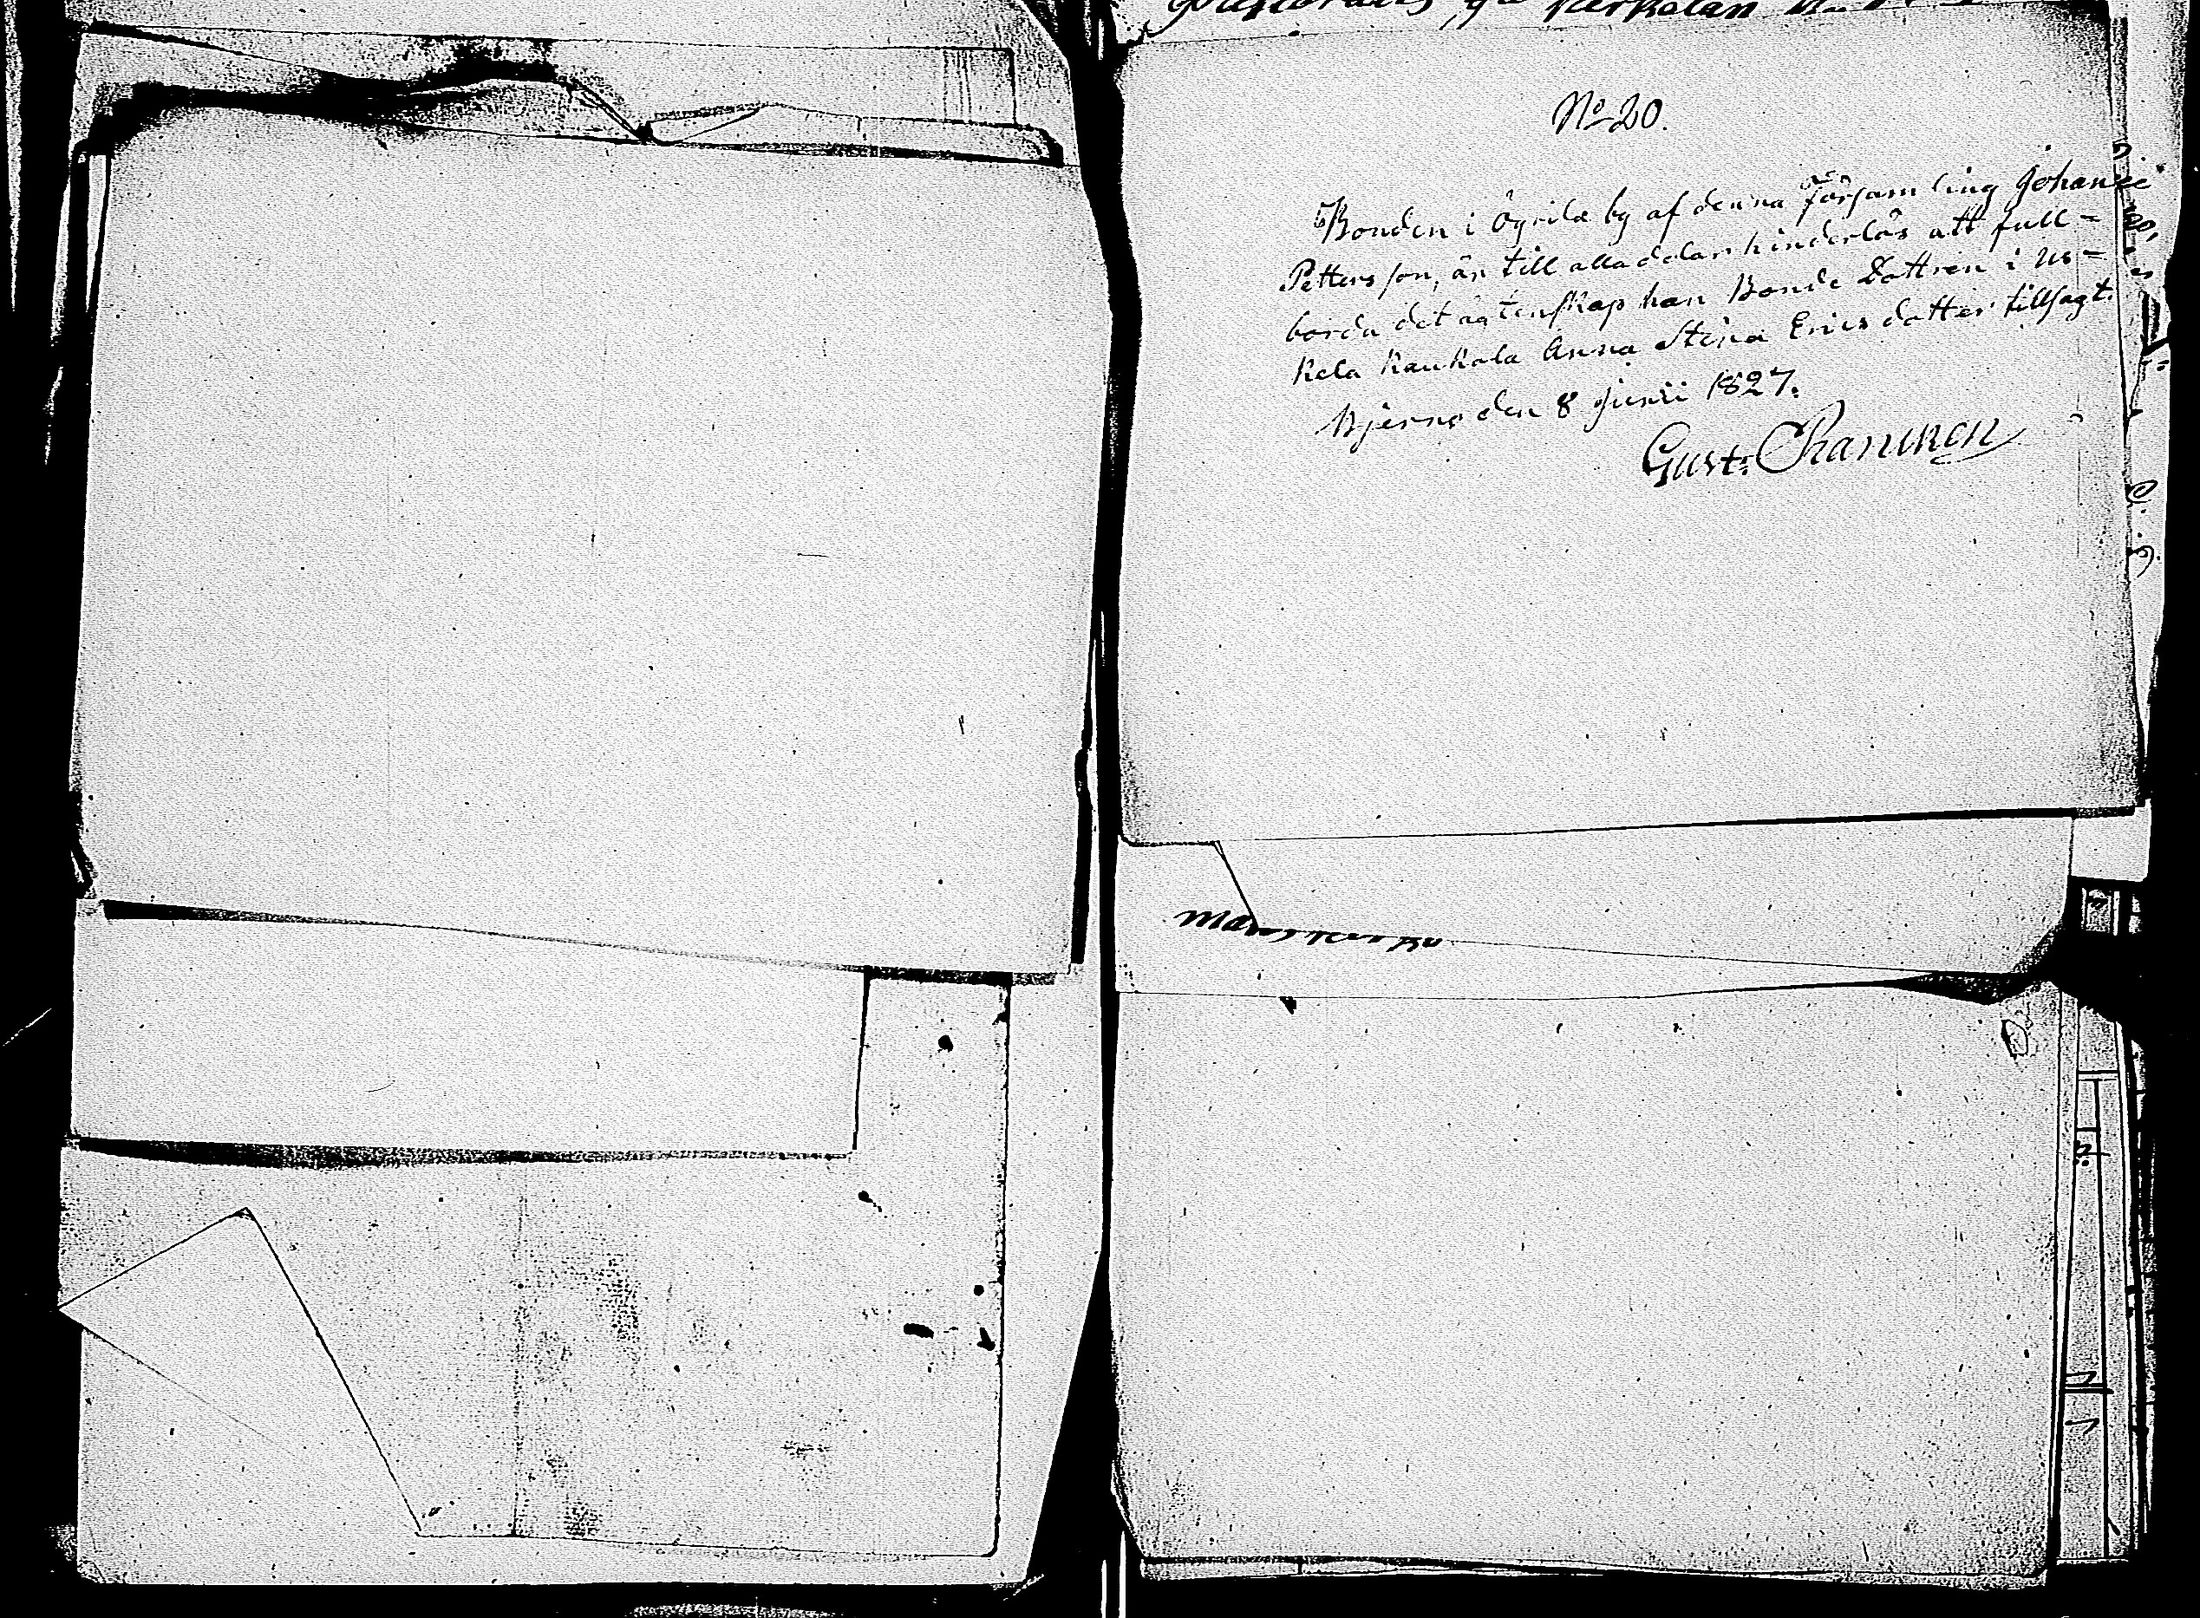 No 20.
Bonden i Ögrila by af denna Församling Johan
Pettersson, är till alla delar hinderlös att full-
borda det ägtenskap han Bonde Dottren i Us-
kela Kaukola Anna Stina Ericsdotter tillsagt.
Bjerno den 8 Junii 1827.
Gust: Chaninen